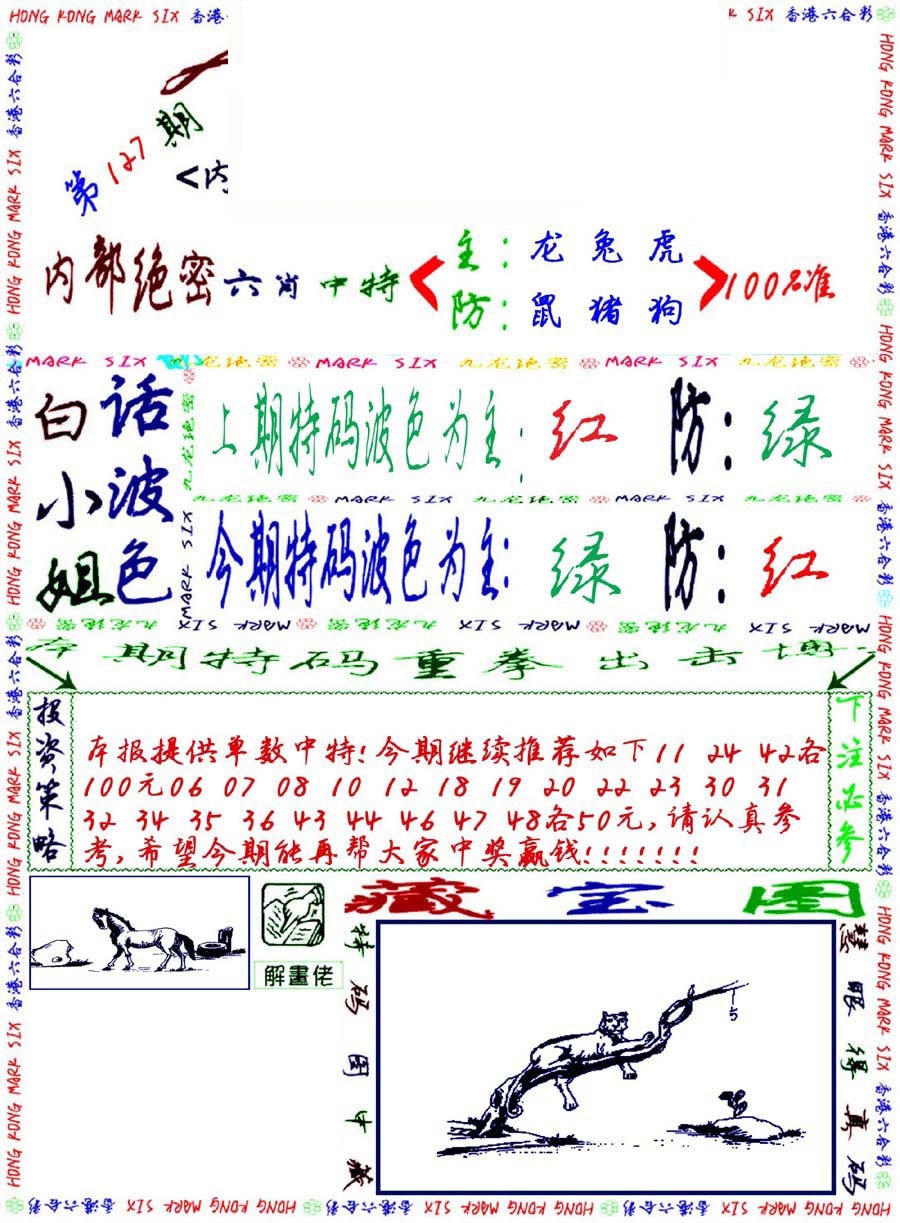 HONG KONG MARK SIX 香港
K SIX 香港六合彩
第127期
<内
内部绝密六肖中特
主：龙兔虎
防：鼠猪狗
100%准
MARK SIX 九龙绝密 MARK SIX 九龙绝密 MARK SIX 九龙绝密
白话小姐波色
上期特码波色为主：红 防：绿
九龙绝密 MARK SIX 九龙绝密 MARK SIX 九龙绝密
今期特码波色为主：绿 防：红
九龙绝密 MARK SIX 九龙绝密 MARK SIX 九龙绝密 MARK SIX
期特码重拳出击
投资策略
本报提供单数中特!今期继续推荐如下11 24 42各
100元06 07 08 10 12 18 19 20 22 23 30 31
32 34 35 36 43 44 46 47 48各50元,请认真参
考,希望今期能再帮大家中奖赢钱!!!!!!!
下注必参
解畫佬
藏宝图
特码图中藏
5
慧眼得真码
HONG KONG MARK SIX 香港六合彩